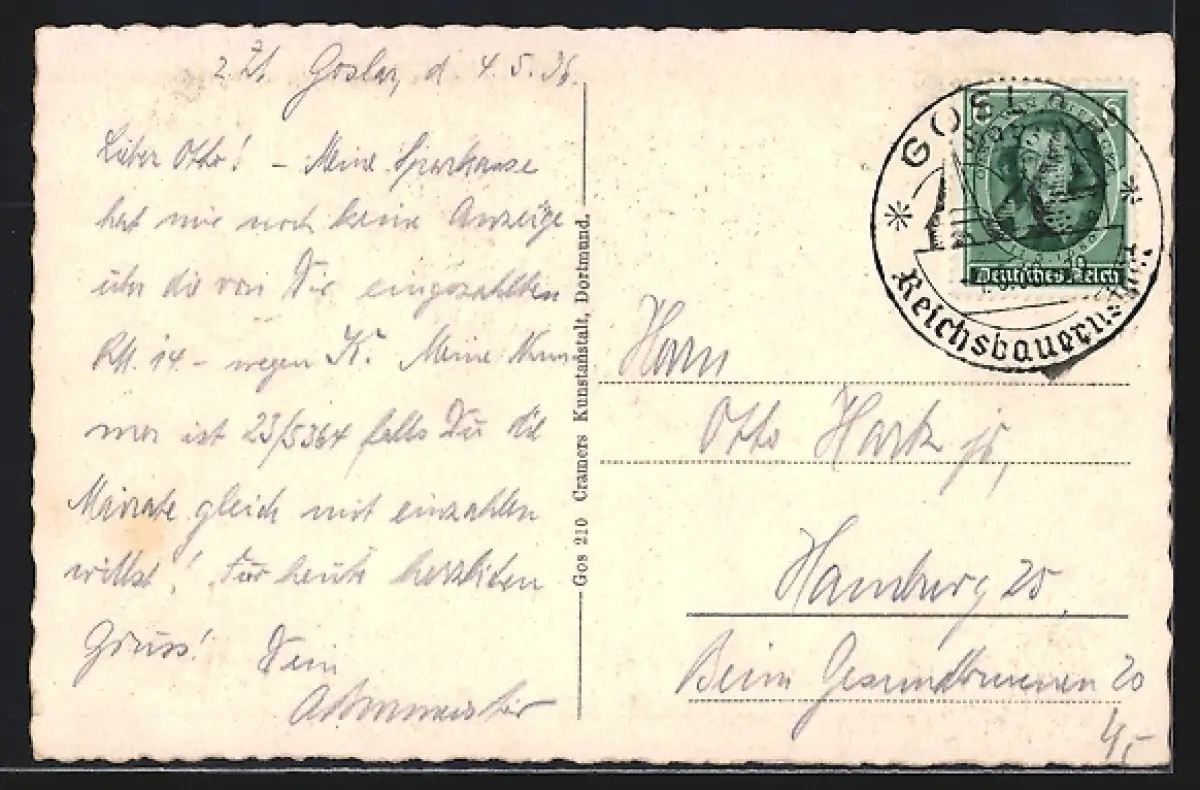 z. Zt. Goslar, d. 4.5.36.
Lieber Otto! - Meine Sparkasse
hat mir noch keine Anzeige
über die von Dir eingezahlten
RM. 14.- wegen K. Meine Num
mer ist 23/5364 falls Du die
Mairate gleich mit einzahlen
willst! Für heute herzlichen
Gruss! Dein
Gos 210 Cramers Kunstanstalt, Dortmund.
GOSLAR
Reichsbauernstadt
6
Deutsches Reich
Herrn
Otto Hark jr,
Hamburg 25,
Beim Gesundbrunnen 20